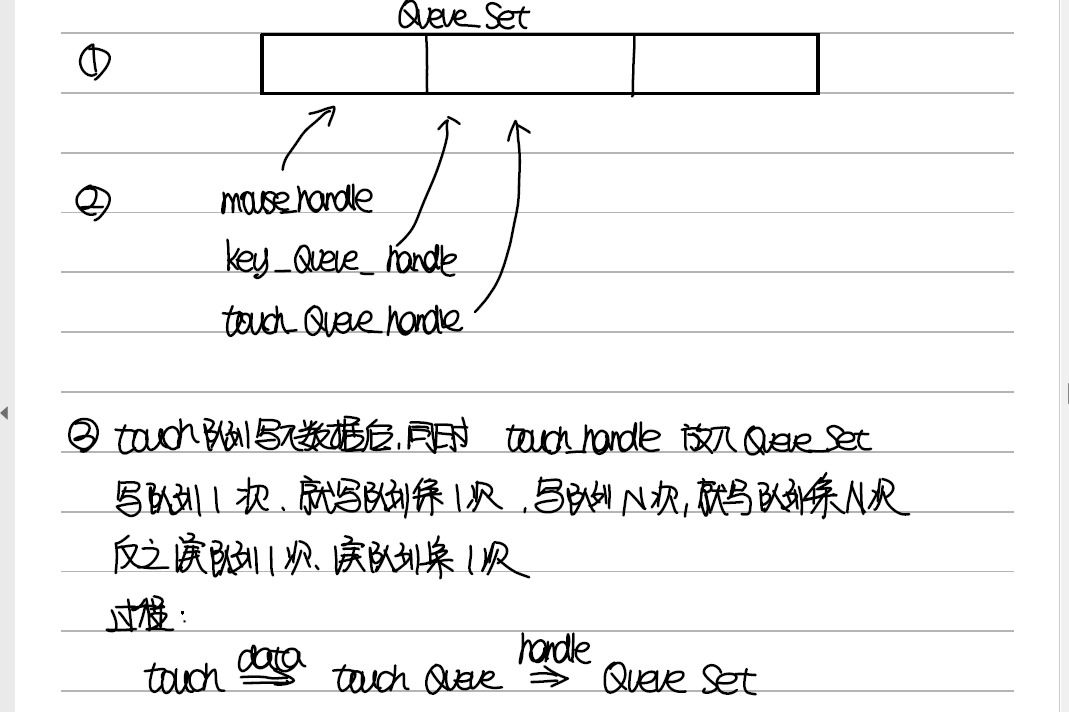 Queue_Set
①
② mouse_handle
key_Queue_handle
touch_Queue_handle
③ touch队列写入数据后,同时 touch_handle 放入 Queue_Set
写队列1次、就写队列集1次,写队列N次,就写队列集N次
反之读队列1次、读队列集1次
过程:
touch data⇒ touch Queue handle⇒ Queue Set